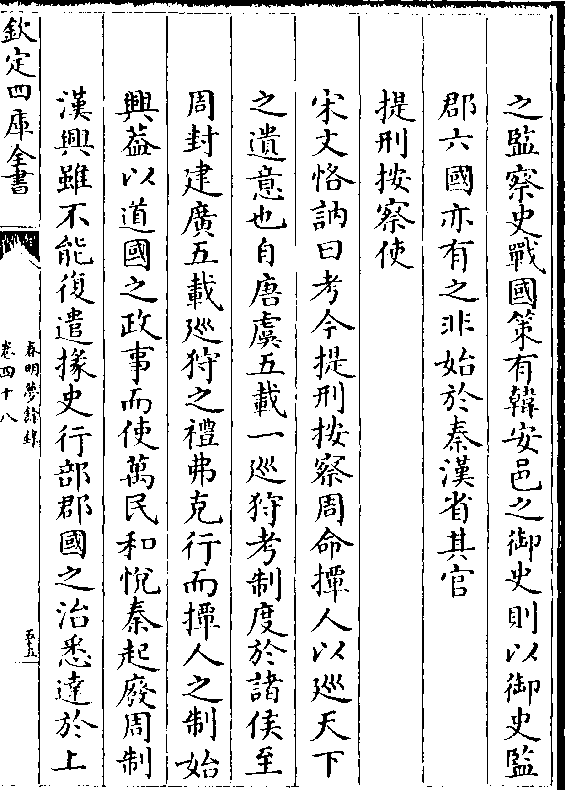 之監察史戰國策有韓安邑之御史則以御史監
郡六國亦有之非始於秦漢省其官
提刑按察使
宋文恪訥曰考今提刑按察周命撢人以廵天下
之遺意也自唐虞五載一廵狩考制度於諸侯至
周封建廣五載廵狩之禮弗克行而撢人之制始
興葢以道國之政事而使萬民和悅秦起廢周制
漢興雖不能復遣掾史行部郡國之治悉達於上
欽定四庫全書
春明夢餘錄
卷四十八
五五